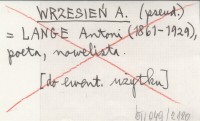 WRZESIEŃ A. (pseud.)
= LANGE Antoni (1861-1929),
poeta, nowelista.
[do ewent. użytku]